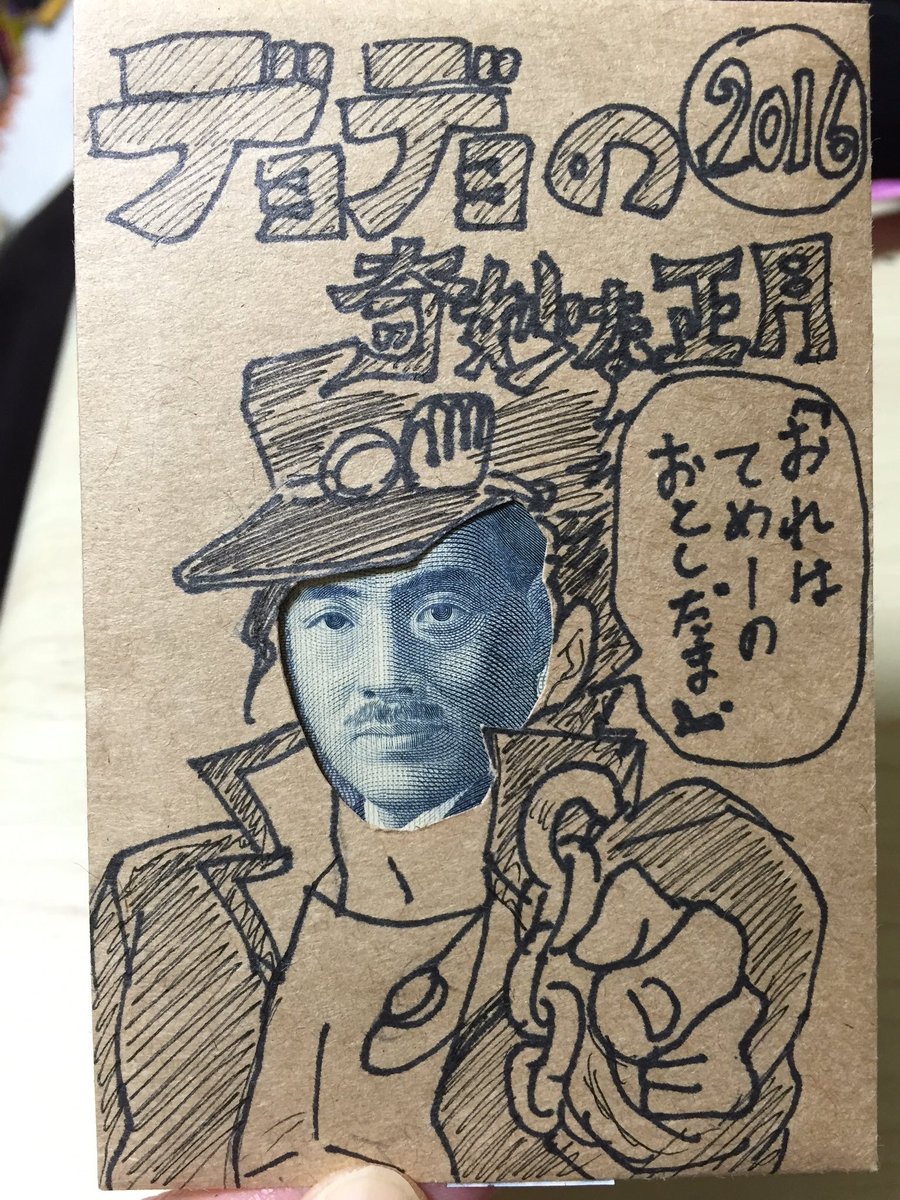 デョデョの
2016
奇妙な正月
「おれは
てめーの
おとしだま」